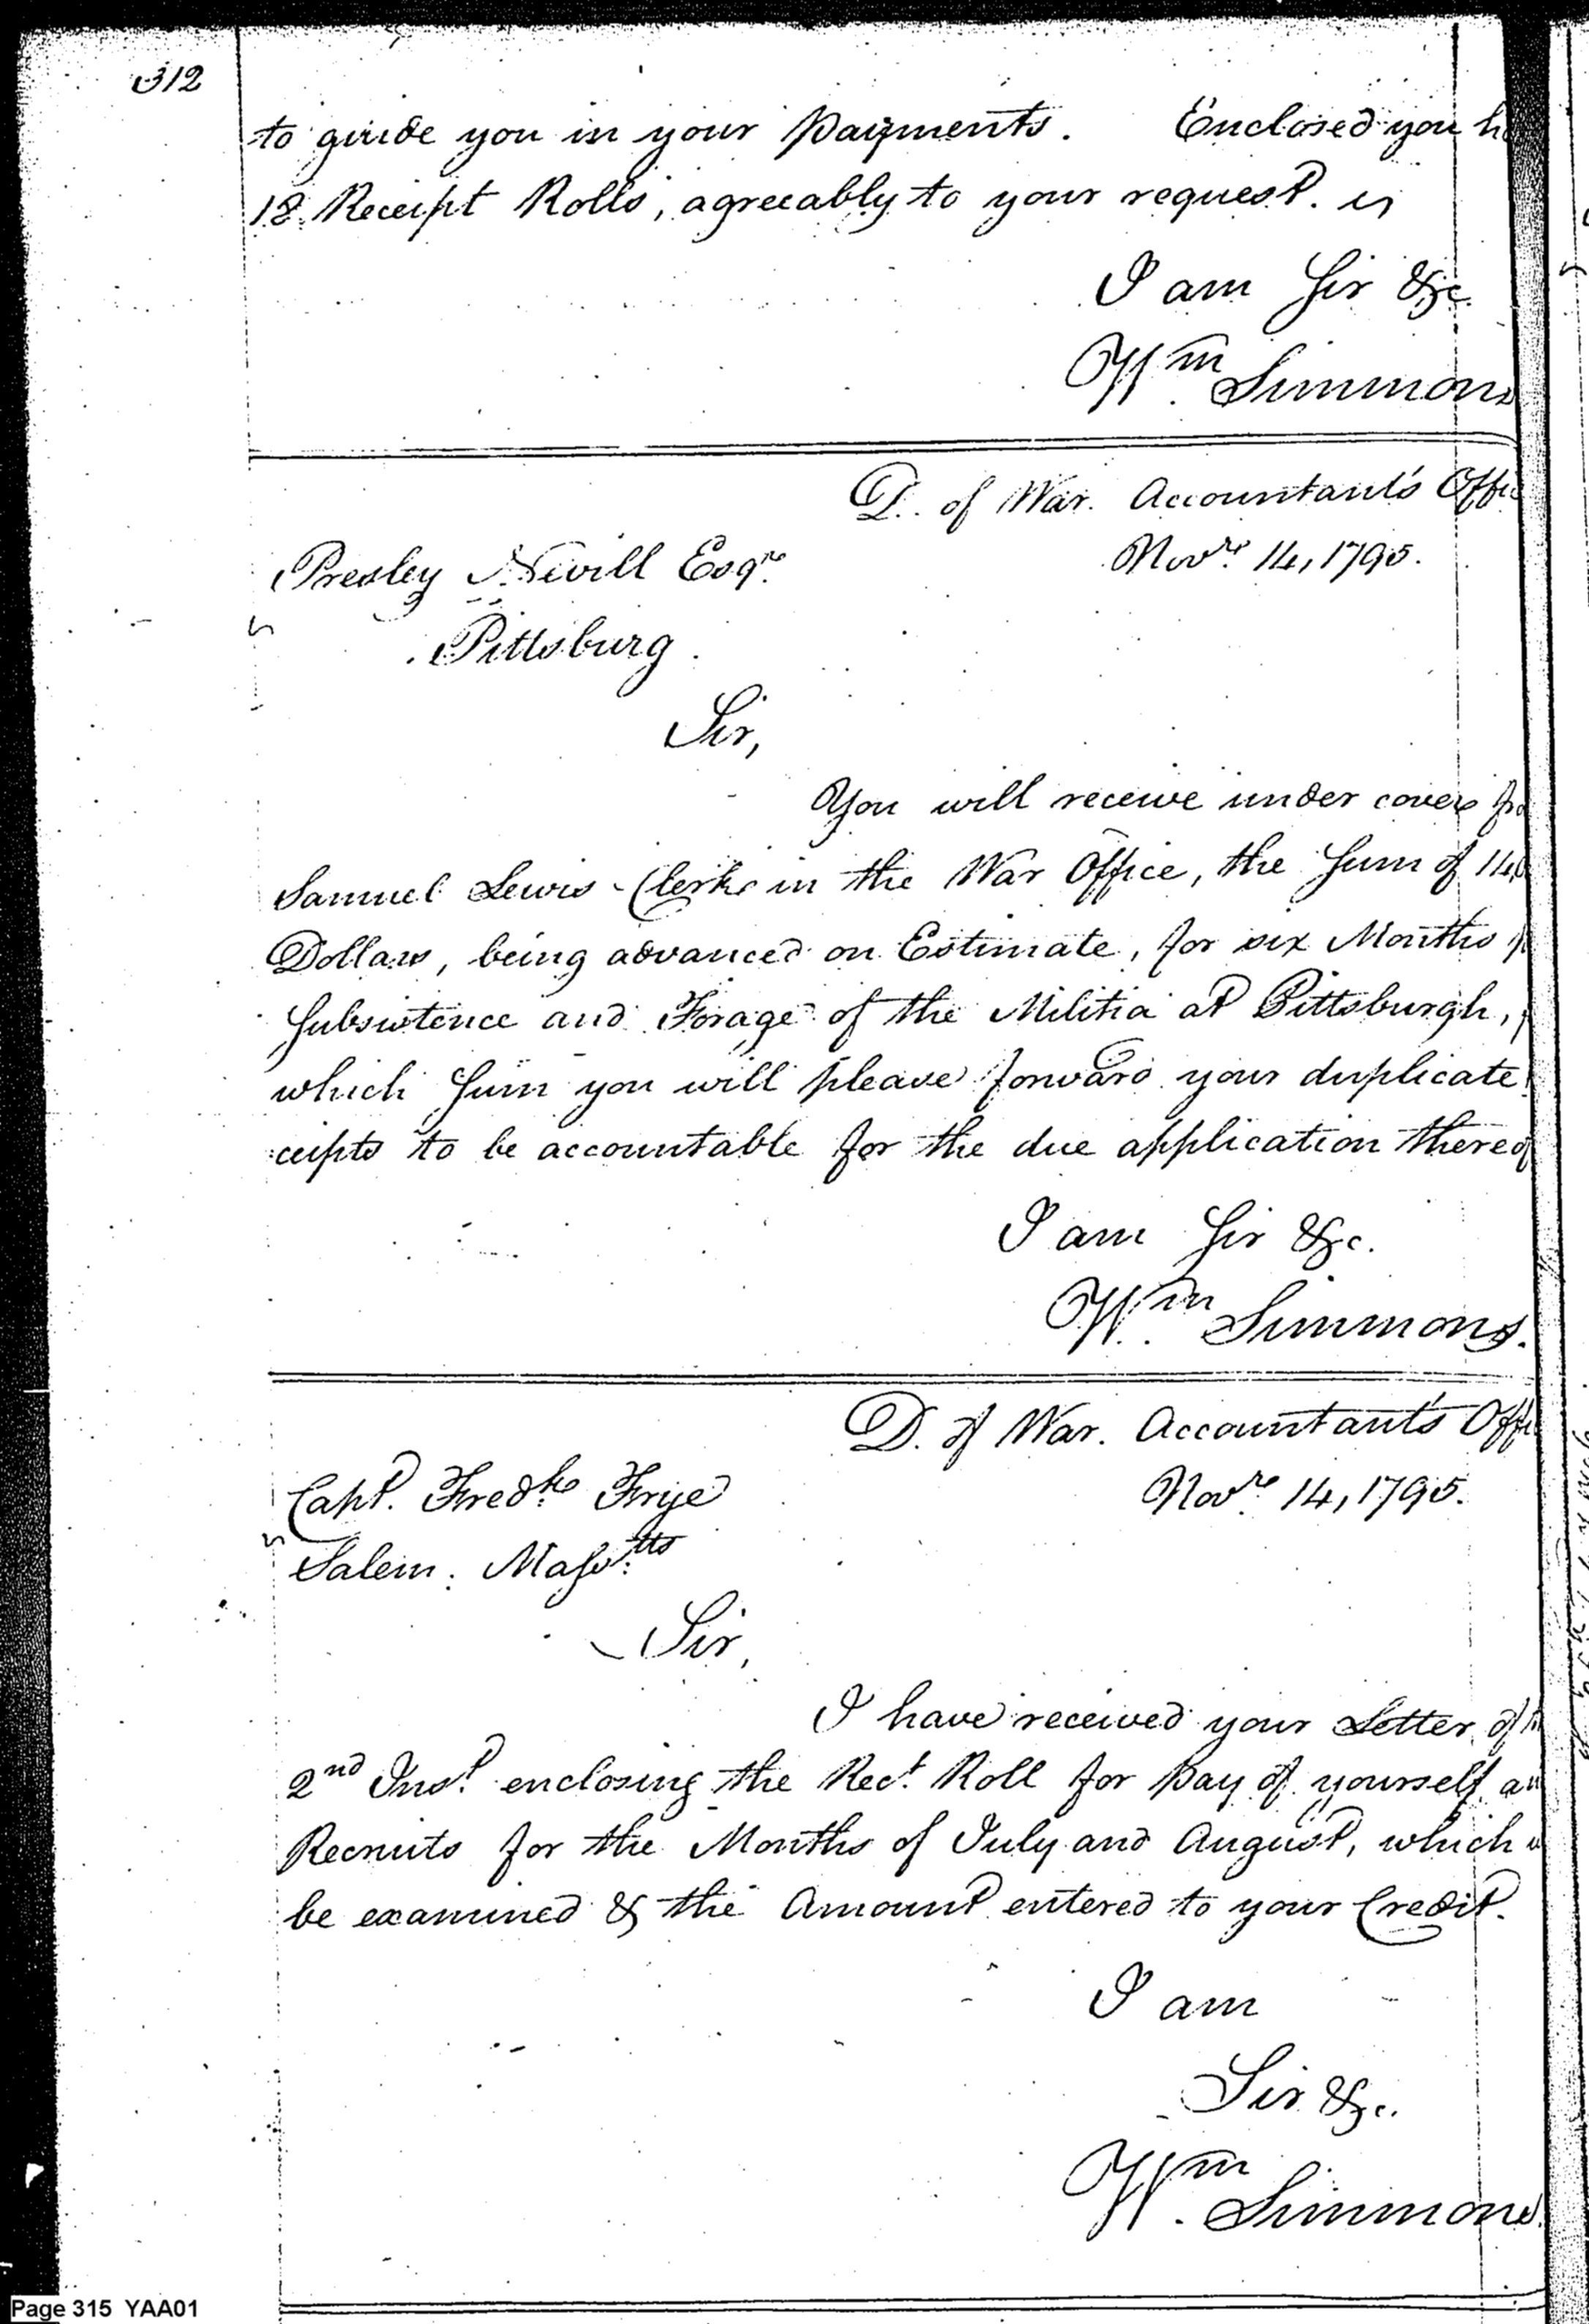 312
to guide you in your payments. Enclosed you
18 Receipt Rolls, agreeably to your request.
I am Sir &c.
Wm Simmons
D. of War. Accountant's Offi
Presley Nevill Esqre
Novre 14, 1795.
Pittsburg.
Sir,
You will receive under cover
Samuel Lewis Clerk in the War Office, the Sum of
Dollars, being advanced on Estimate, for six Months
Subsistence and Forage of the Militia at Pittsburgh,
which Sum you will please forward your duplicate
:ceipts to be accountable for the due application thereof
I am Sir &c.
Wm Simmons.
D. of War. Accountant's Offi
Capt. Fredk Frye
Novre 14, 1795.
Salem. Massttts
Sir,
I have received your Letter of
2nd Inst. enclosing the Rect. Roll for pay of yourself an
Recruits for the Months of July and August, which
be examined & the Amount entered to your Credit.
I am
Sir &c.
Wm. Simmons.
Page 315 YAA01